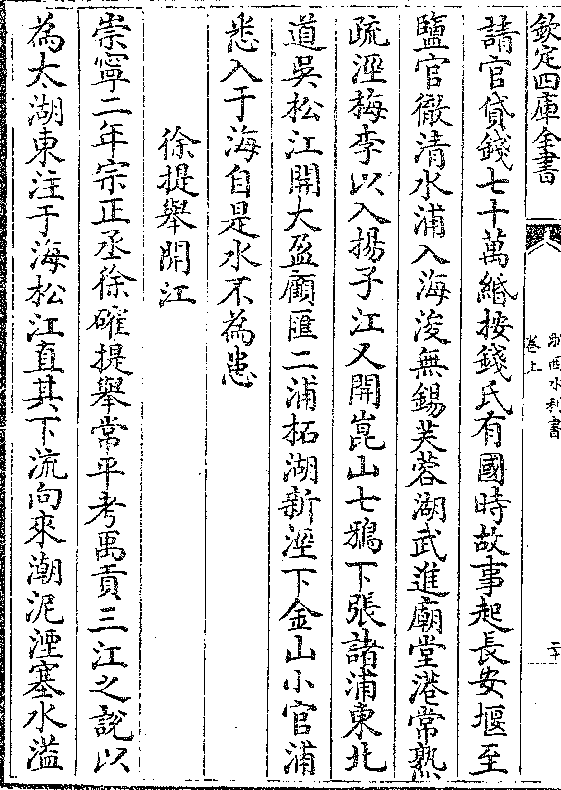 欽定四庫全書
浙西水利書
卷上
二十
請官貸錢七十萬緡按錢氏有國時故事起長安堰至
鹽官徹清水浦入海浚無錫芙蓉湖武進廟堂港常熟
疏涇梅李以入揚子江又開崑山七鴉下張諸浦東北
道吳松江開大盈顧匯二浦柘湖新涇下金山小官浦
悉入于海自是水不為患
徐提舉開江
崇寧二年宗正丞徐確提舉常平考禹貢三江之說以
為太湖東注于海松江直其下流向來潮泥湮塞水溢